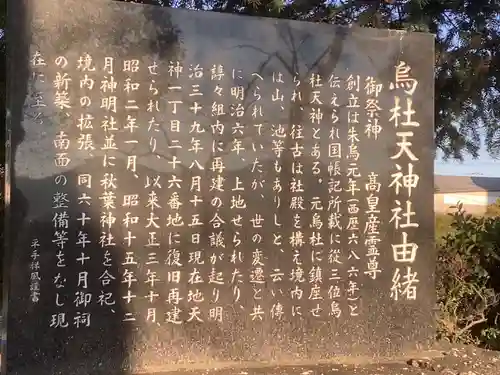 烏杜天神社由緒
御祭神 高皇産霊尊
創立は朱鳥元年(西歴六八六年)と
伝えられ国帳記所載に従三位烏
杜天神とある。元烏杜に鎮座せ
られ、往古は社殿を構え境内に
は山、池等もありしと云い傳
へられていたが、世の変遷と共
に明治六年、上地せられたり、
諄々組内に再建の合議が起り明
治三十九年八月十五日現在地天
神一丁目二十六番地に復旧再建
せられたり、以来大正三年十月、
昭和二年一月、昭和十五年十二
月神明社並に秋葉神社を合祀、
境内の拡張、同六十年十月御祠
の新築、南面の整備等をなし現
在に至る
平手祥風謹書